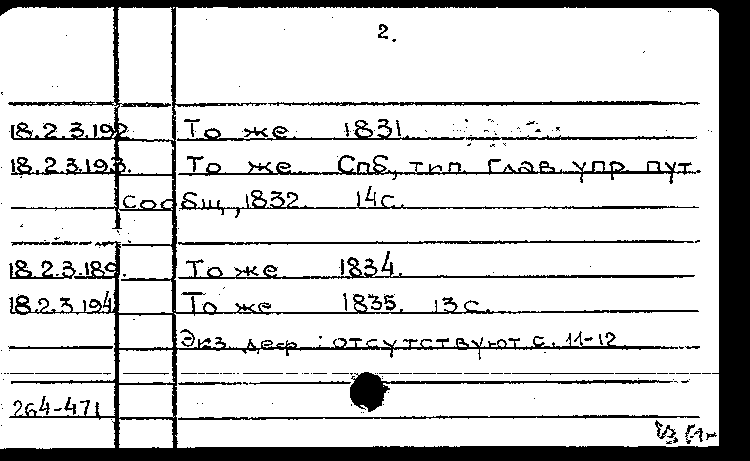 2.
18.2.3.192 То же 1831.
18.2.3.193. То же Спб., тип. Глав. упр. пут.
сообщ., 1832. 14с.
18.2.3.189. То же 1834.
18.2.3.194 То же 1835. 13с.
Экз. деф.: отсутствуют с. 11-12
264-471